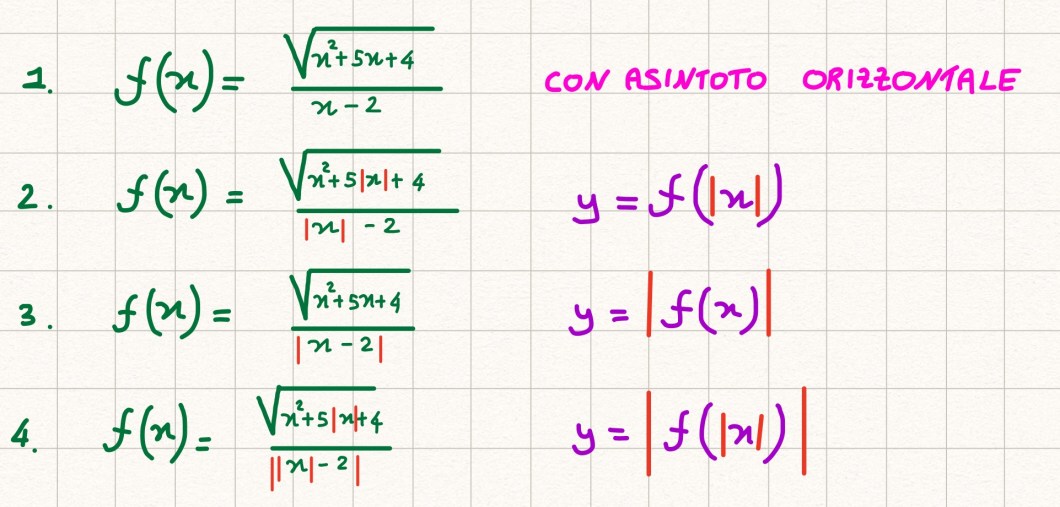 1. f(x) = √(x²+5x+4) / (x-2) CON ASINTOTO ORIZZONTALE
2. f(x) = √(x²+5|x|+4) / (|x|-2) y = f(|x|)
3. f(x) = √(x²+5x+4) / |x-2| y = |f(x)|
4. f(x) = √(x²+5|x|+4) / ||x|-2| y = |f(|x|)|